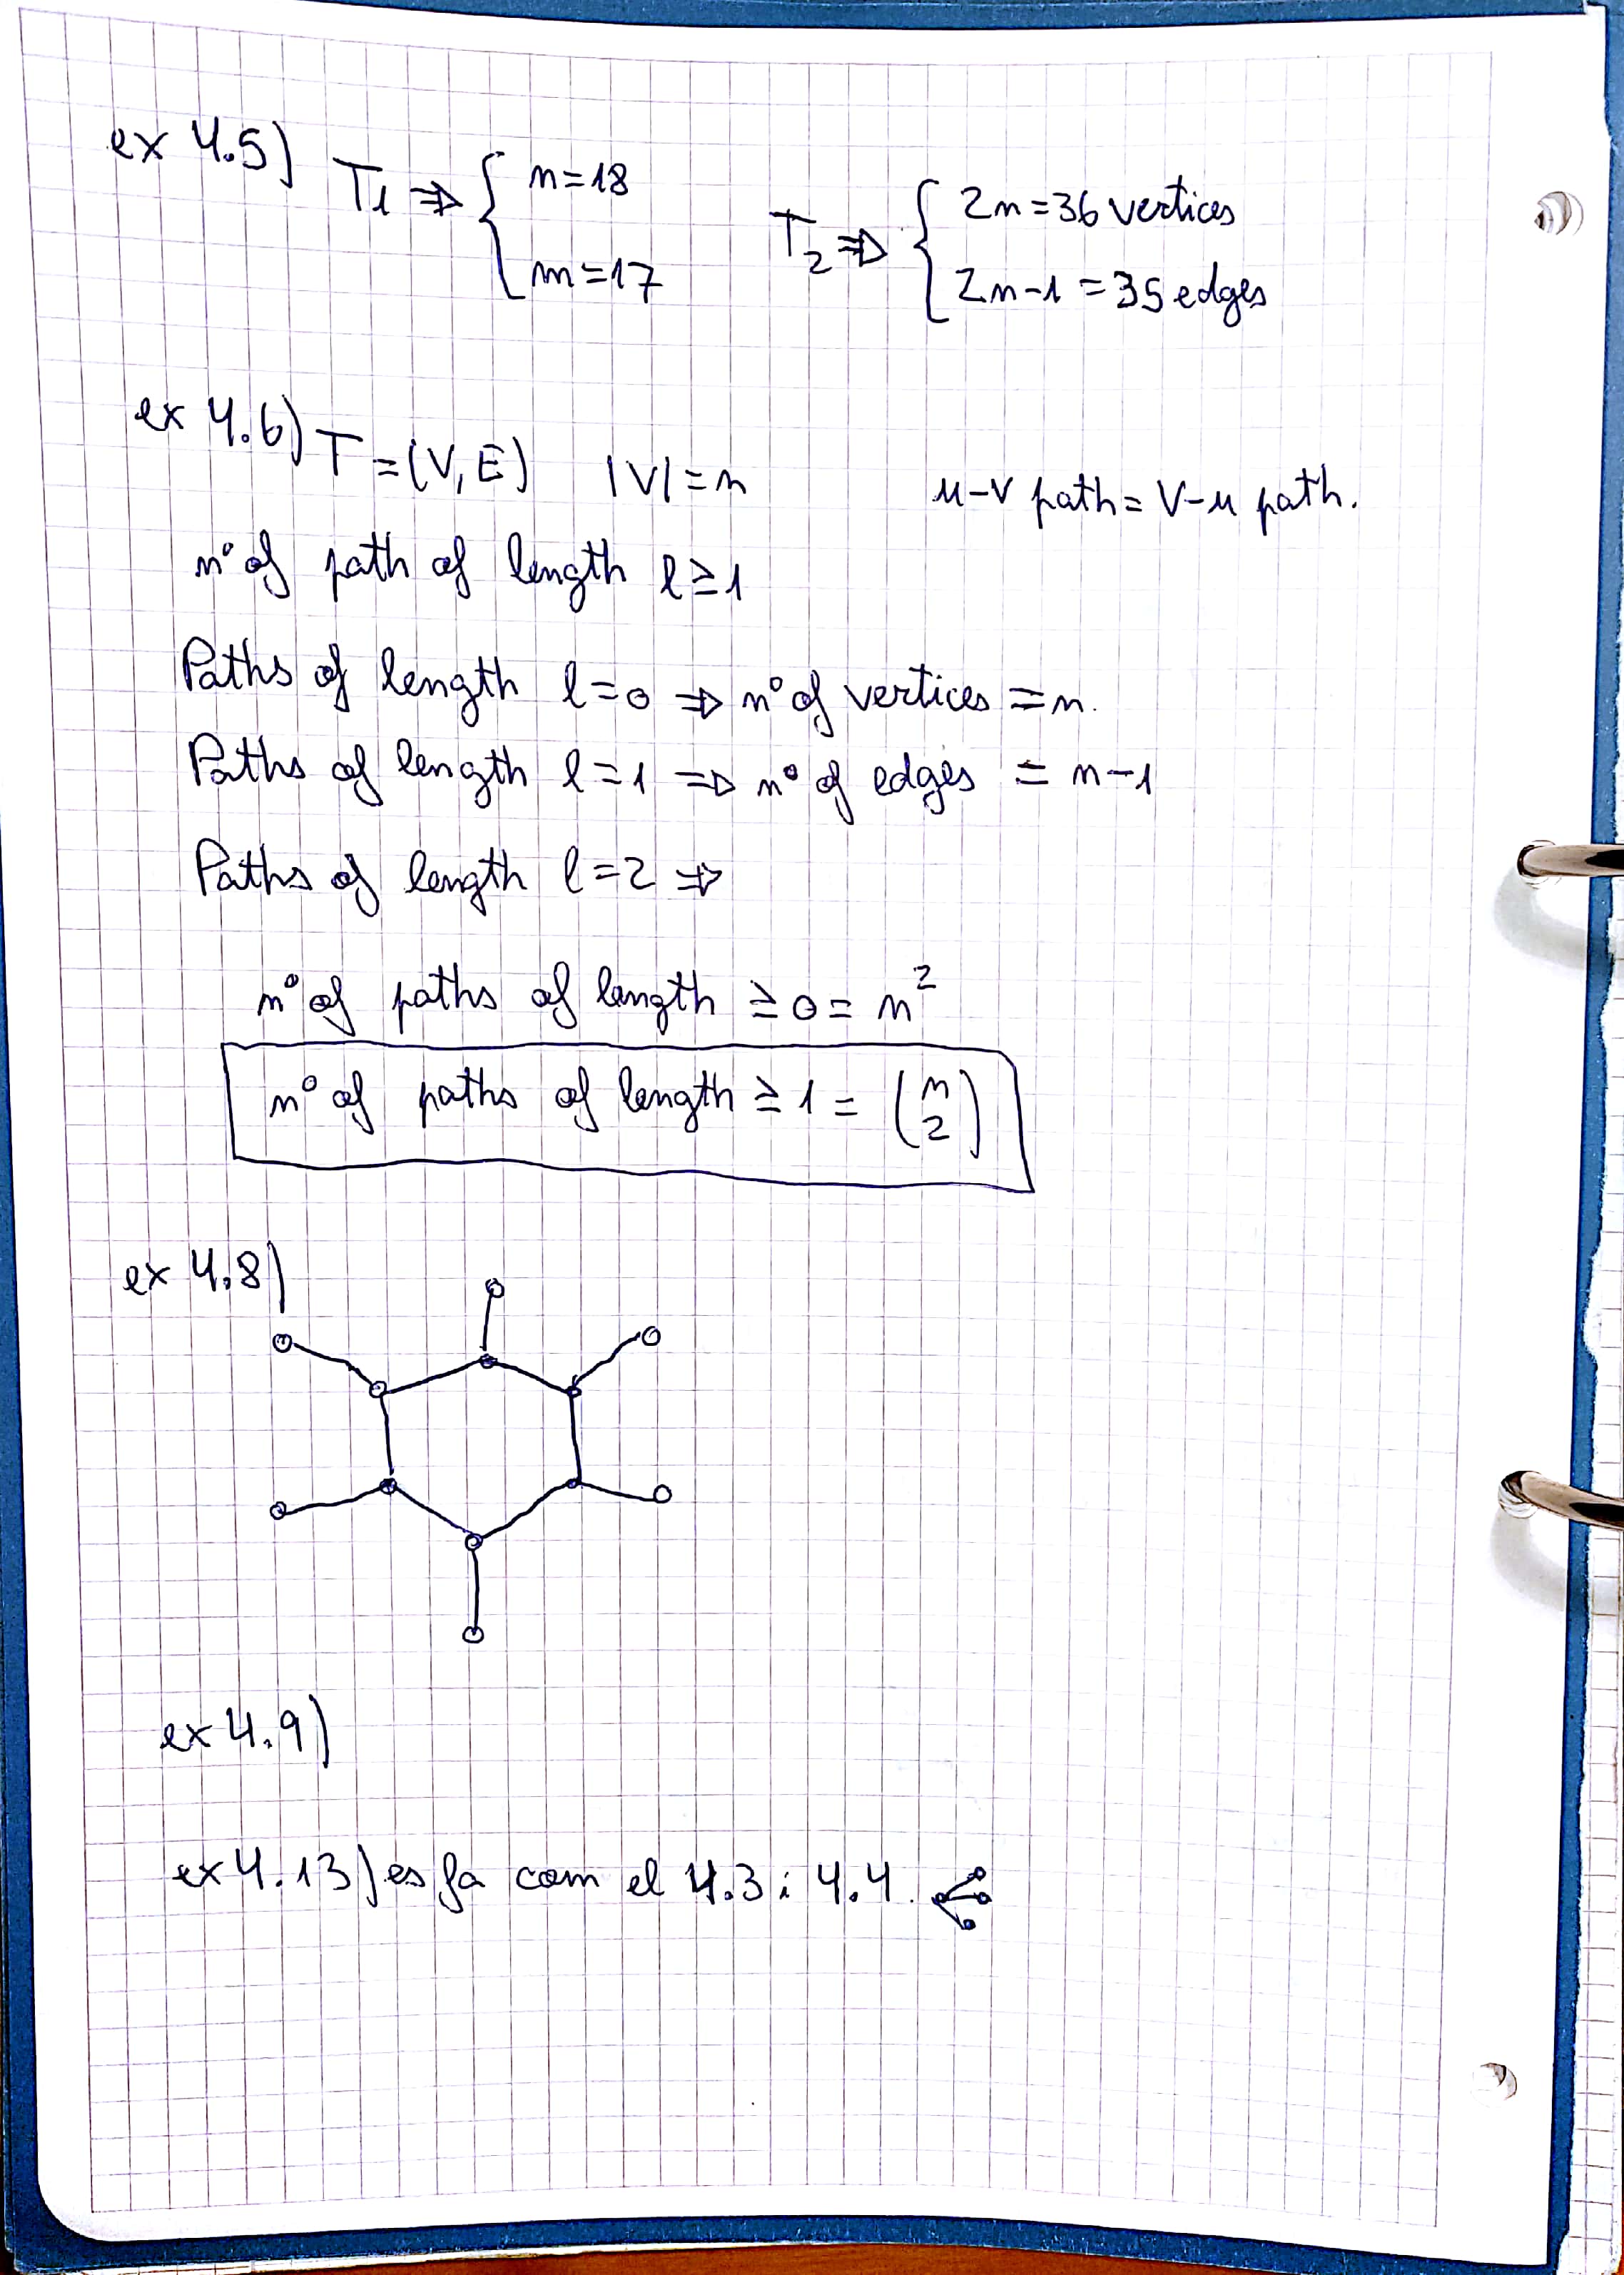 ex 4.5) T1 ⇒ { n=18
m=17
T2 ⇒ { 2n=36 vertices
2n-1=35 edges
ex 4.6) T=(V,E) |V|=n u-v path=v-u path.
nº of path of length l≥1
Paths of length l=0 ⇒ nº of vertices =n.
Paths of length l=1 ⇒ nº of edges = n-1
Paths of length l=2 ⇒
nº of paths of length ≥0= n²
nº of paths of length ≥1= (n 2)
ex 4.8)
ex 4.9)
ex 4.13) es fa com el 4.3 i 4.4.